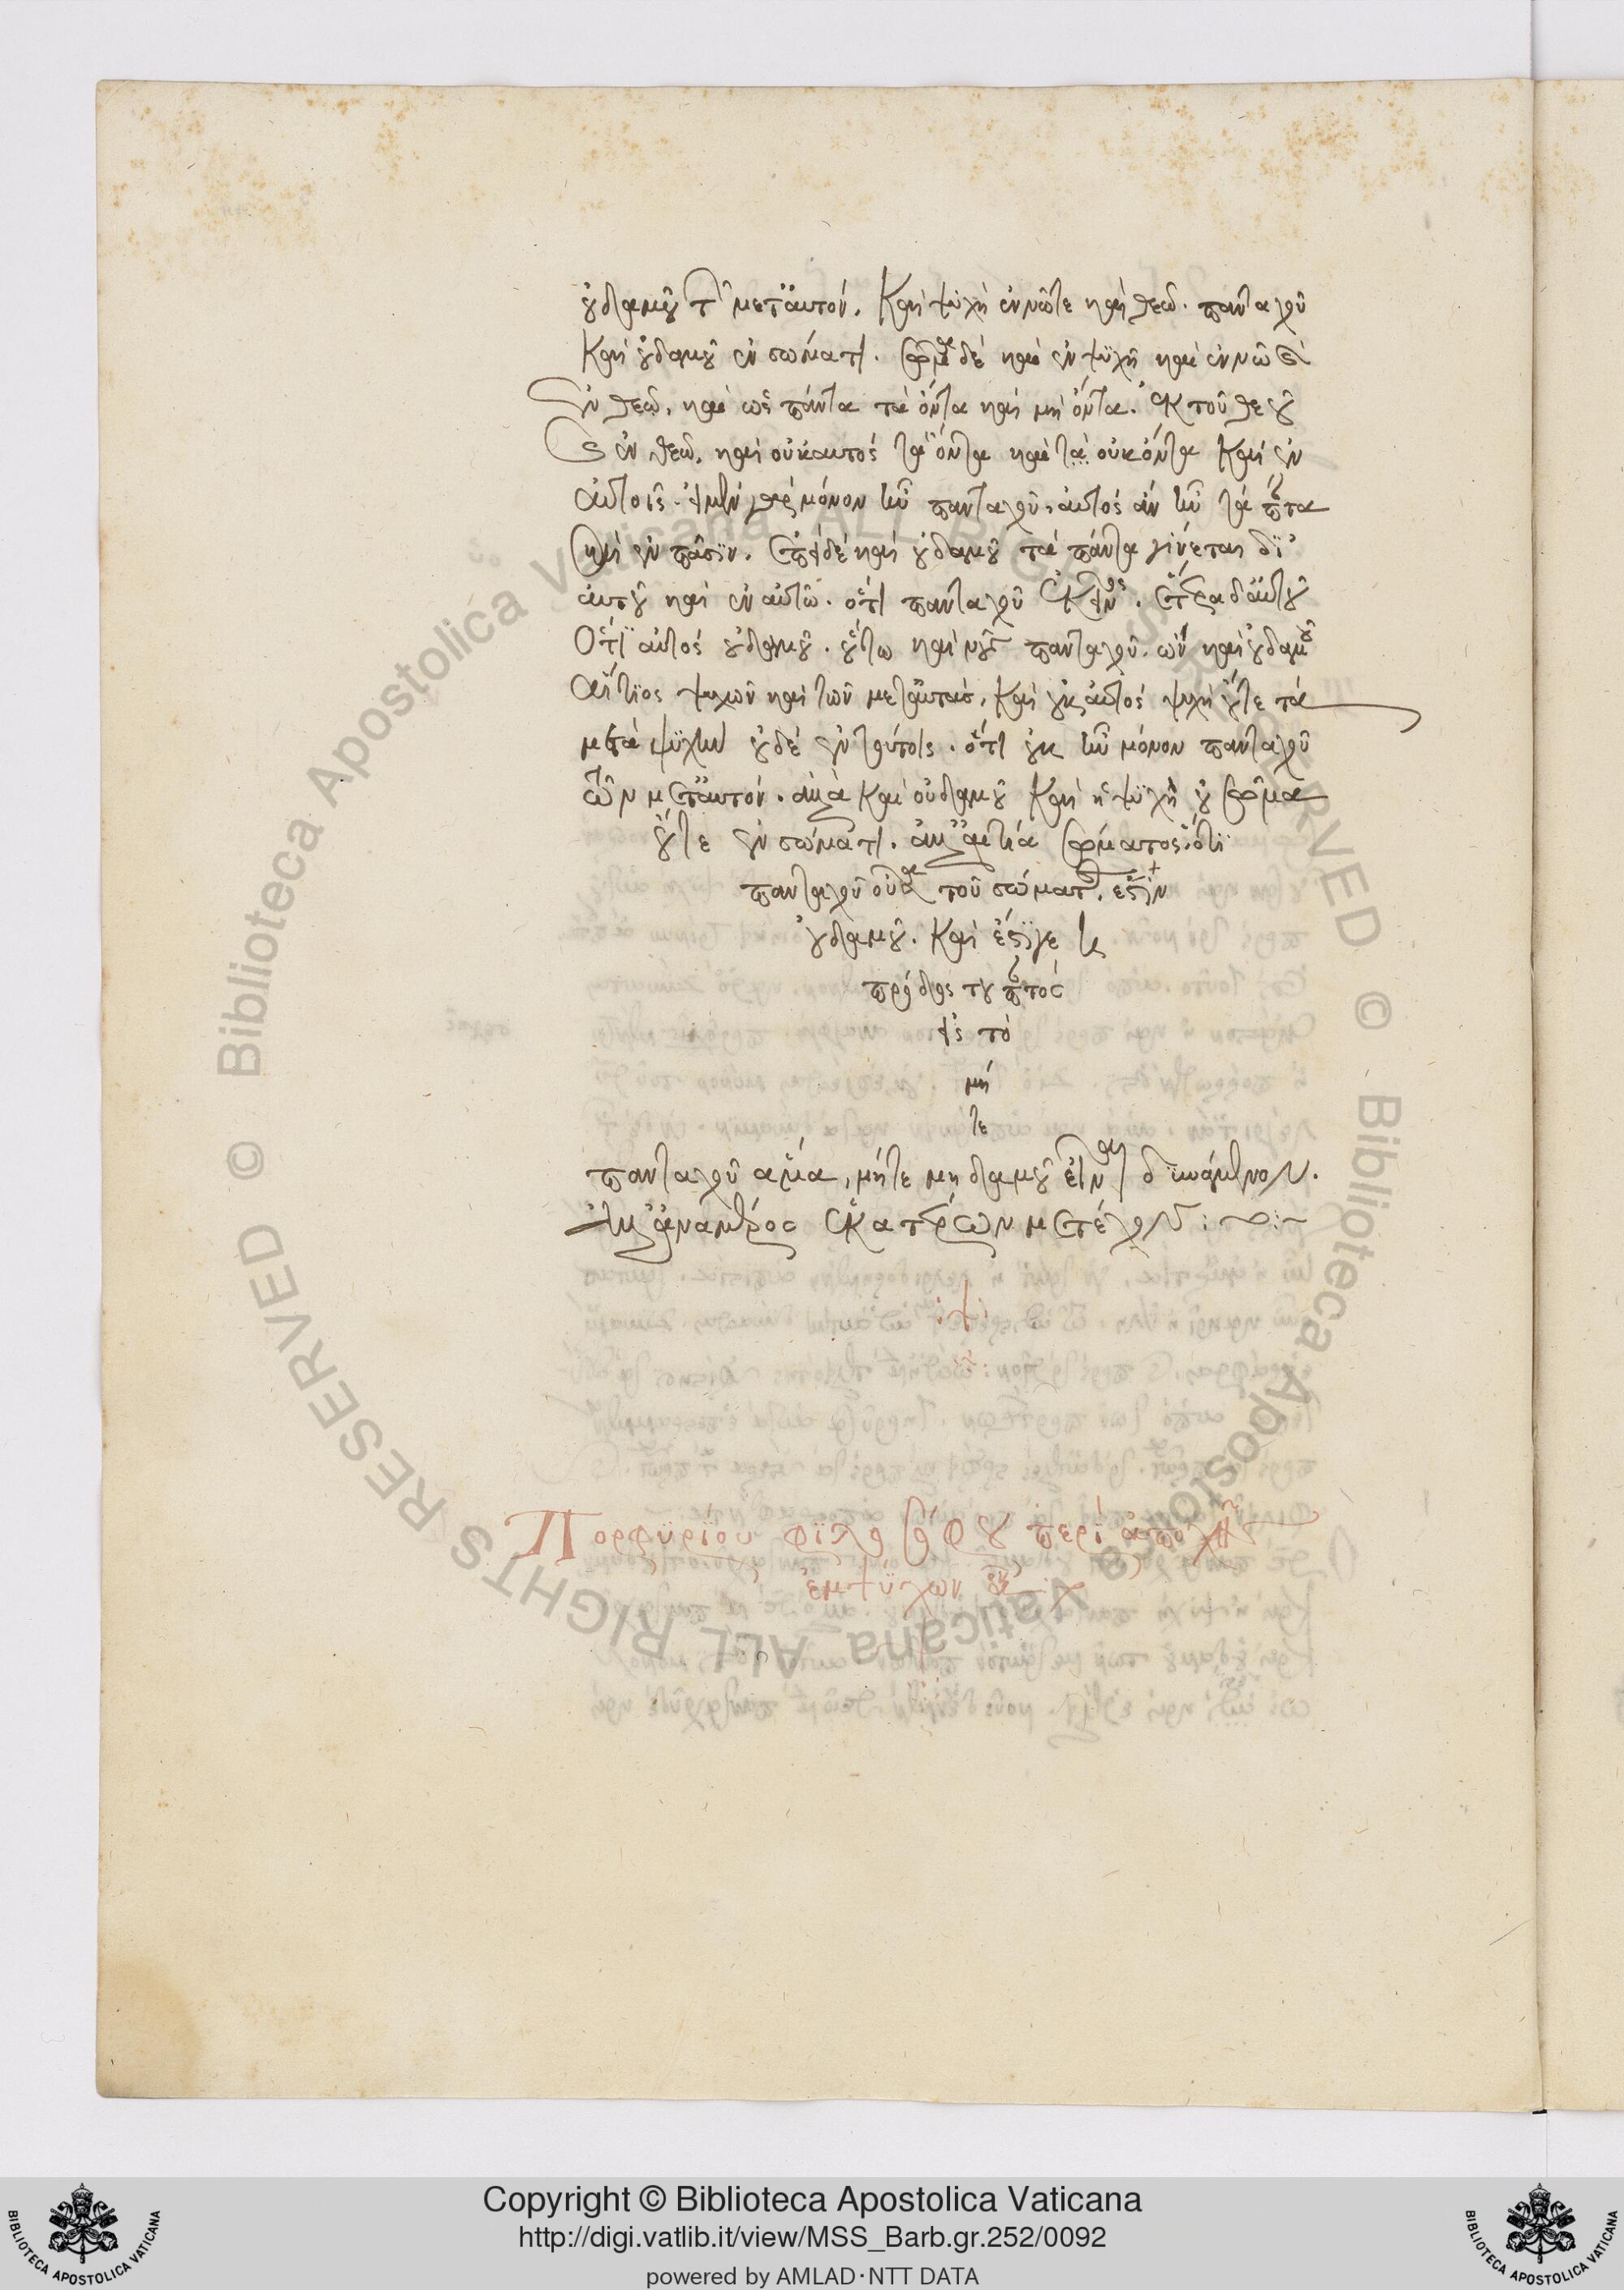 οὐδαμοῦ τῶν μετ' αὐτόν. Καὶ ψυχὴ ἐν νῶτε καὶ θεῶ. πανταχοῦ
Καὶ οὐδαμοῦ ἐν σώματι. σῶμα δὲ καὶ ἐν ψυχῆ καὶ ἐν νῶ καὶ
ἐν θεῶ. καὶ ὡς πάντα τὰ ὄντα καὶ μὴ ὄντα. ἐκ τοῦ θεοῦ
καὶ ἐν θεῶ. καὶ οὐκ αὐτὸς τὰ ὄντα καὶ τὰ οὐκ ὄντα Καὶ ἐν
αὐτοῖς. εἰ μὲν γὰρ μόνον ἦν πανταχοῦ, αὐτὸς ἂν ἦν τὰ πάντα
καὶ ἐν πᾶσιν. ἐπεὶ δὲ καὶ οὐδαμοῦ τὰ πάντα γίνεται δι'
αὐτοῦ καὶ ἐν αὐτῶ. ὅτι πανταχοῦ ἐκεῖνος. ἕτερα δ' αὐτοῦ
Ὅτι αὐτὸς οὐδαμοῦ. οὕτω καὶ νοῦς πανταχοῦ. ὢν καὶ οὐδαμοῦ
αἴτιος ψυχῶν καὶ τῶν μετ' αὐτάς. Καὶ οὐκ αὐτὸς ψυχὴ οὔτε τὰ
μετὰ ψυχὴν οὐδὲ ἐν τούτοις. ὅτι οὐκ ἦν μόνον πανταχοῦ
τῶν μετ' αὐτόν. ἀλλὰ Καὶ οὐδαμοῦ Καὶ ἡ ψυχὴ οὐ σῶμα
οὔτε ἐν σώματι. ἀλλ' αἰτία σώματος. ὅτι
πανταχοῦ οὖσα τοῦ σώματος. ἐστὶν
οὐδαμοῦ. Καὶ ἔστιγε
πρόοδος τοῦ παντὸς
εἰς τὸ
μή
τε
πανταχοῦ ἅμα, μήτε μηδαμοῦ εἶναι δυνάμενον.
ἀλλ' ἀνὰ μέρος ἑκατέρων μετέχον
Πορφυρίου φιλοσόφου περὶ ἀποχῆς
ἐμψύχων
Copyright © Biblioteca Apostolica Vaticana
http://digi.vatlib.it/view/MSS_Barb.gr.252/0092
powered by AMLAD·NTT DATA
BIBLIOTECA APOSTOLICA VATICANA
BIBLIOTECA APOSTOLICA VATICANA
© Biblioteca Apostolica Vaticana ALL RIGHTS RESERVED © Biblioteca Apostolica Vaticana ALL RIGHTS RESERVED